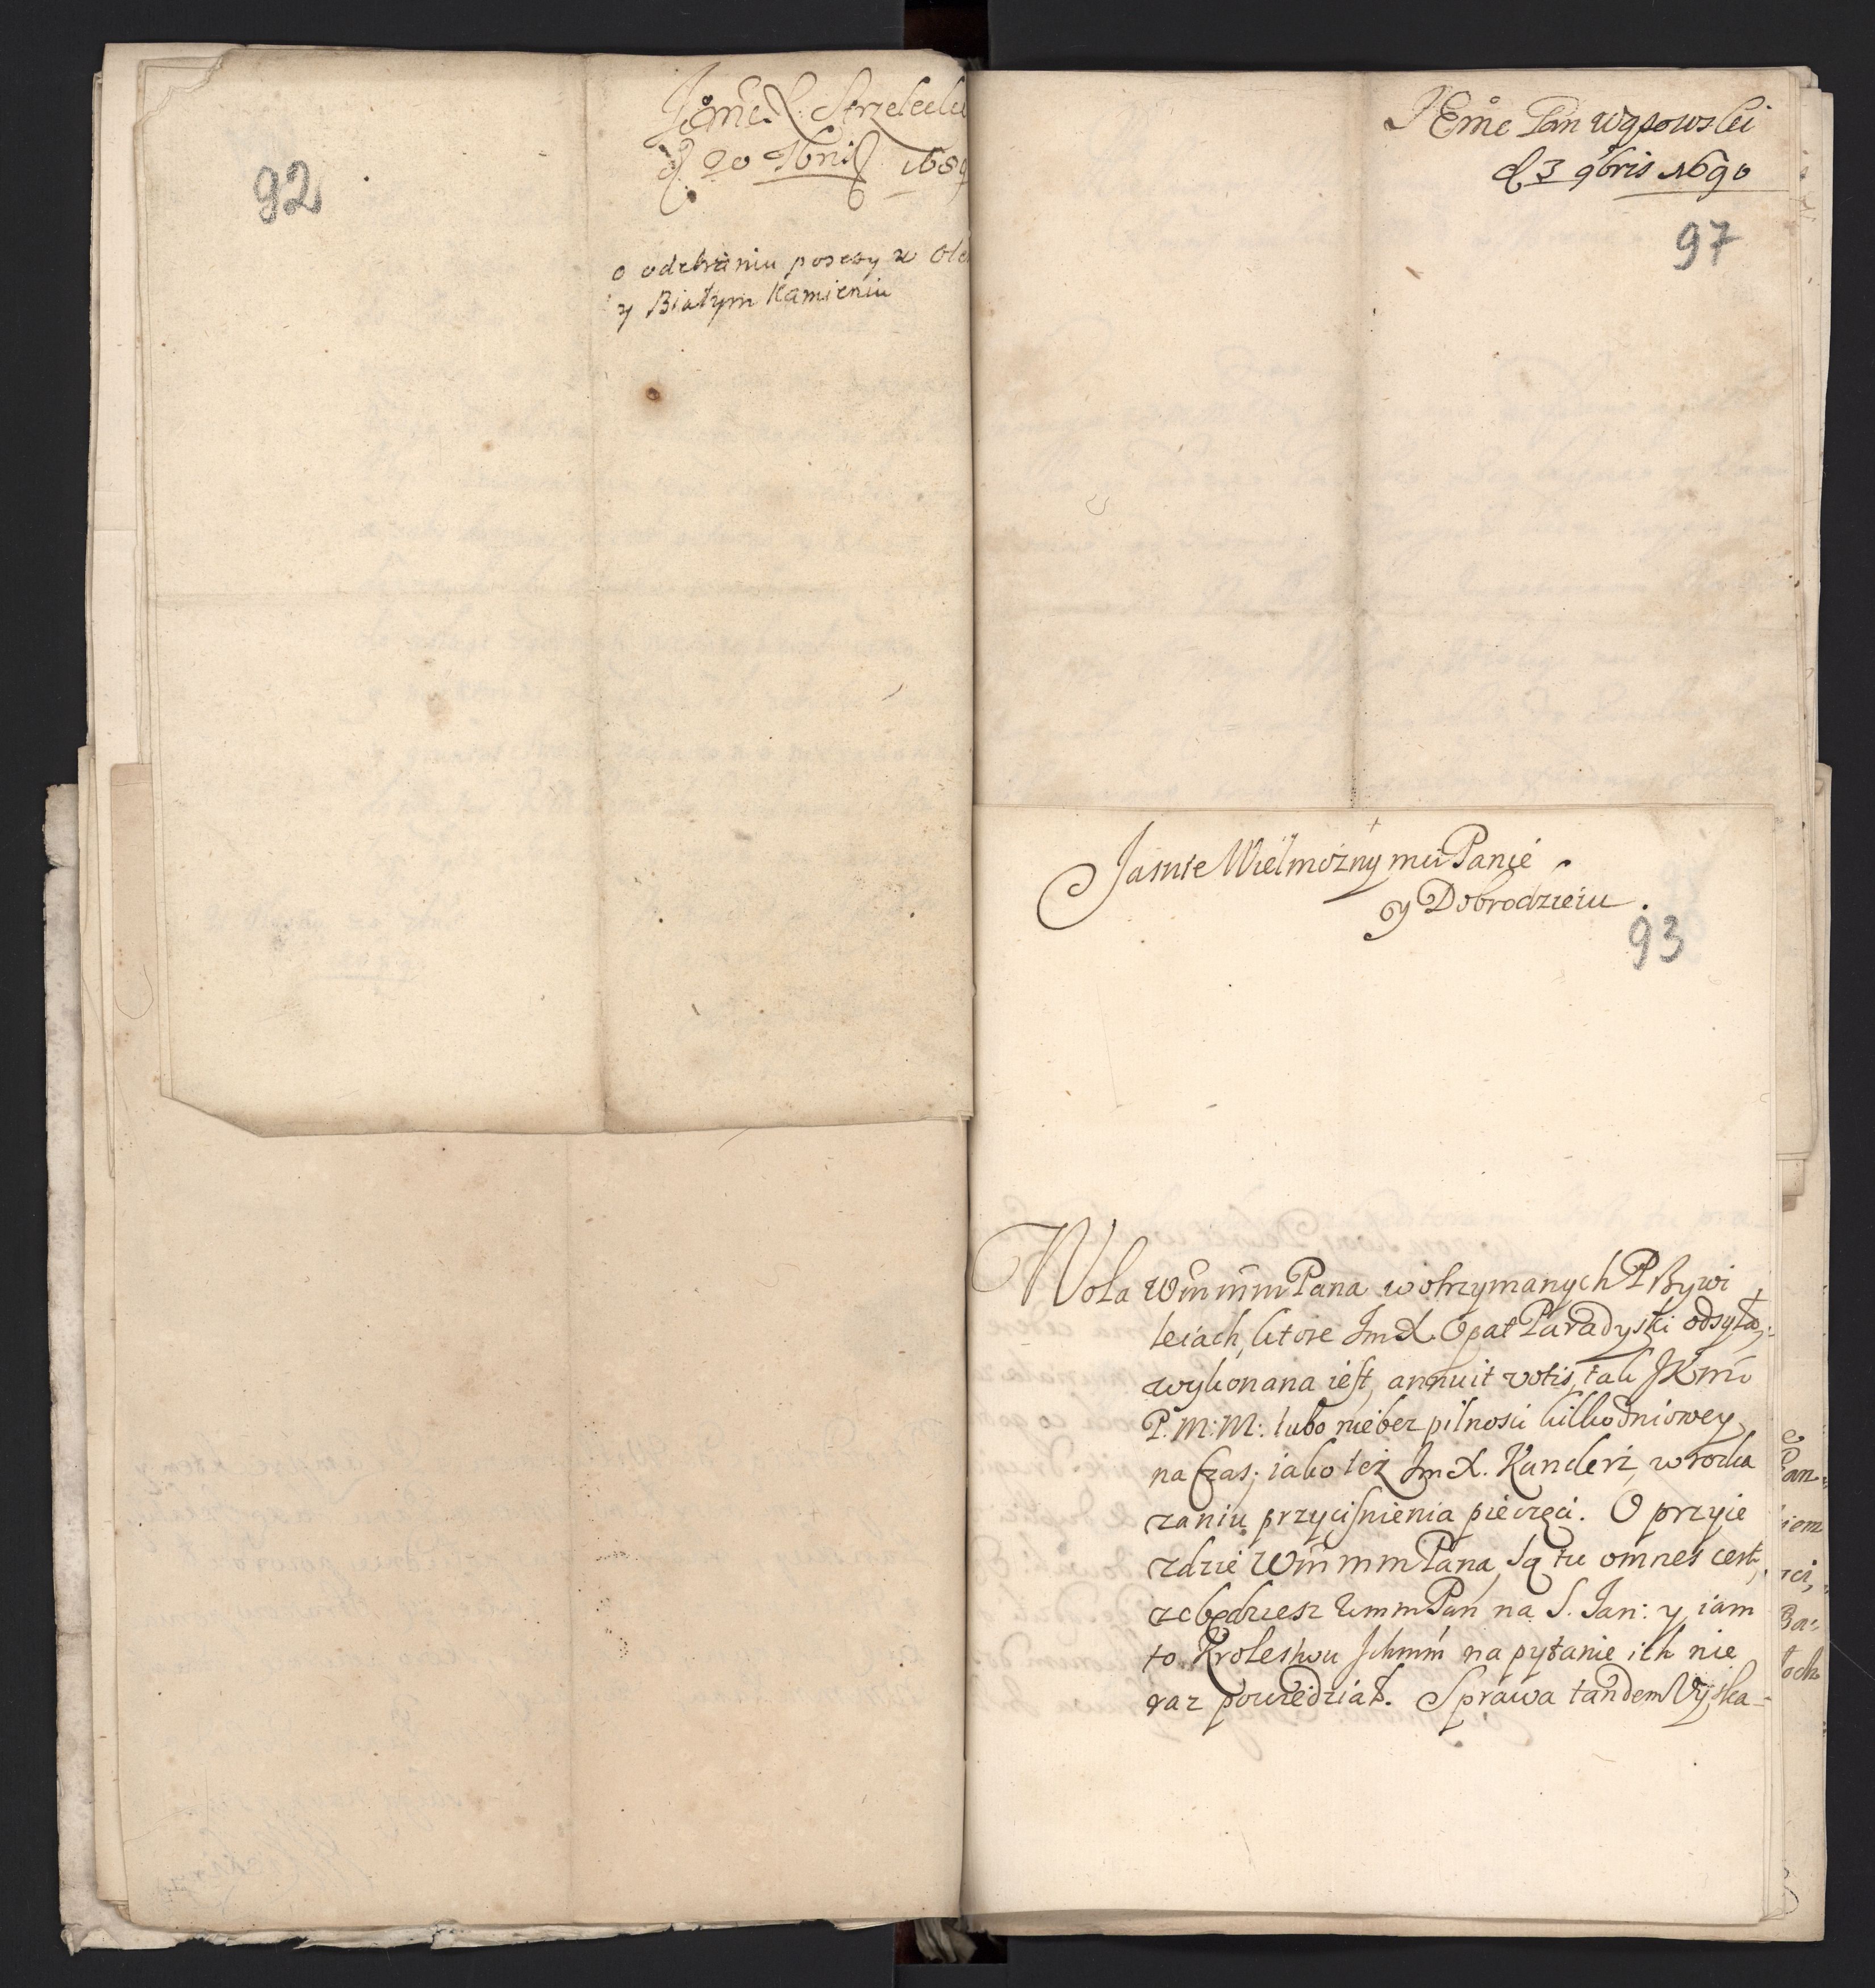 Jomc X. Strzelecki
d 20 Xbris 1689
92
o odebraniu possesy w Ole
y Białym Kamieniu
JEmc Pan Wąsowski
d 3 9bris 1690
97
Jasnie Wielmożny mci Panie
y Dobrodzieiu.
93
Wola Wm mm Pana w otrzymanych PRzywi
leiach, ktore Jm X. Opat Paradyski odsyła,
wykonana iest, annuit votis, tak JKmc
P.M:M: lubo nie bez pilnosci kilkodniowey
na czas; iako też Jm X. Kanclerz, w rozka
zaniu przycisnienia pieczęci. O przyie
zdzie Wm mm Pana, są tu omnes certi,
ze będziesz Wmm Pan na S. Jan: y iam
to Krolestwu Ichmm na pytanie ich nie
raz powiedział. Sprawa tandem Wyska-